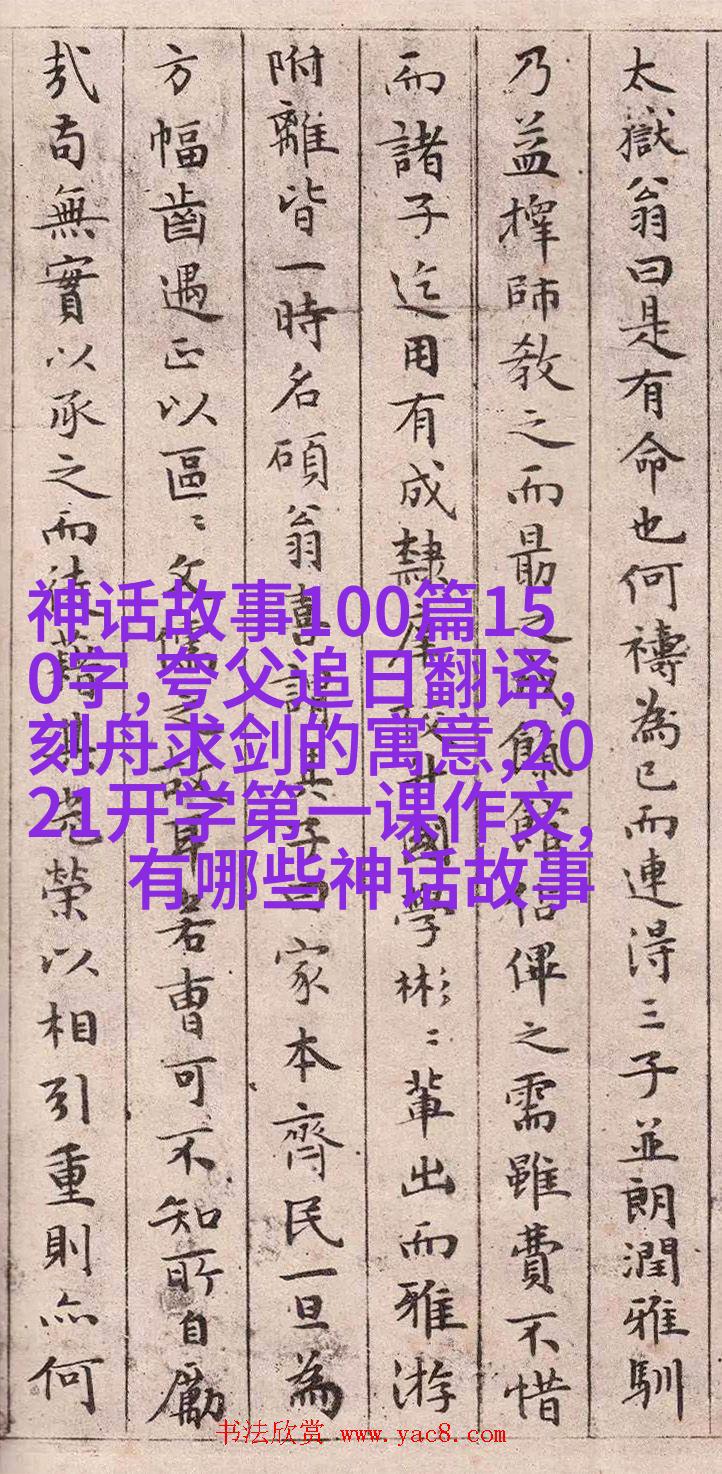 太嶽翁曰是有命也何禱為已而連得三子並朗潤雅馴
乃益擇師教之而最之餼館之需雖費不惜
而諸子迄用有成隸庠國學彬〻輩出而雅游
附離皆一時名碩翁喜謂其子曰家本齊民一旦為
方幅齒遇正以區〻文儒之故耳若曹可不知所自勵
哉苟無實以承之而徒藉其光榮以相引重則亦何
神话故事100篇15
0字,夸父追日翻译,
刻舟求剑的寓意,20
21开学第一课作文,
有哪些神话故事
书法欣赏 www.yac8.com